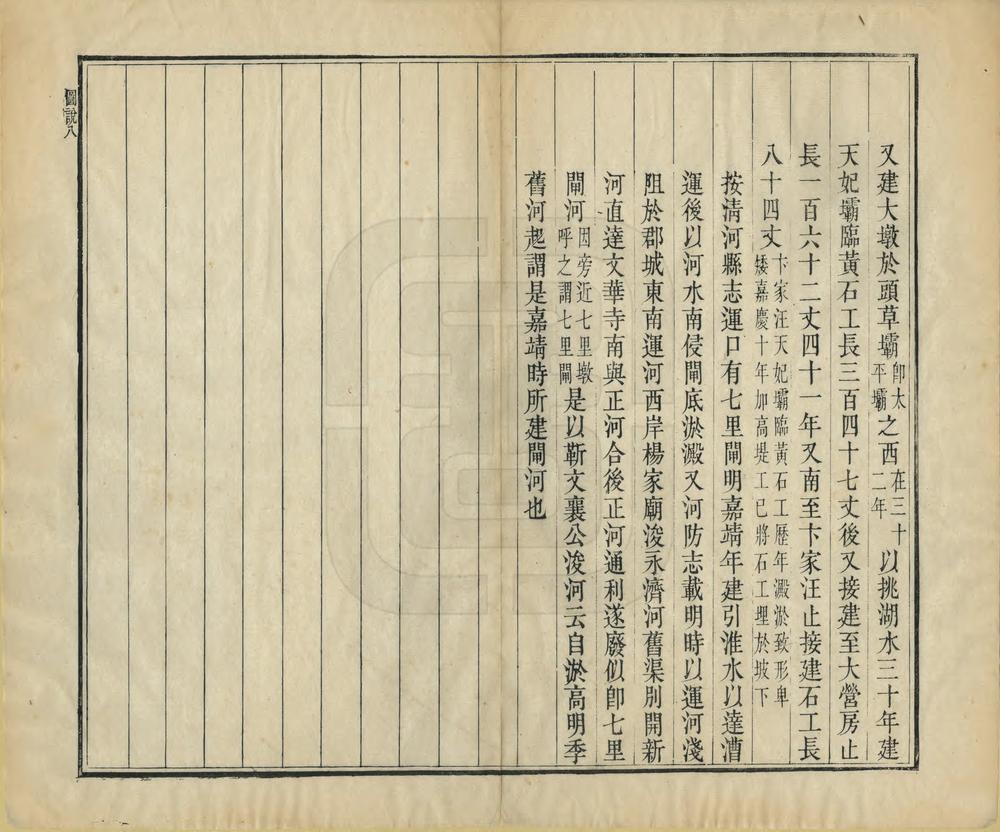 又建大墩於頭草壩卽太平壩之西在三十二年以挑湖水三十年建
天妃壩臨黃石工長三百四十七丈後又接建至大營房止
長一百六十二丈四十一年又南至卞家汪止接建石工長
八十四丈卞家汪天妃壩臨黃石工歷年澱淤致形卑矮嘉慶十年加高堤工已將石工埋於坡下
按清河縣志運口有七里閘明嘉靖年建引淮水以達漕
運後以河水南侵閘底淤澱又河防志載明時以運河淺
阻於郡城東南運河西岸楊家廟浚永濟河舊渠別開新
河直達文華寺南與正河合後正河通利遂廢似卽七里
閘河因旁近七里墩呼之謂七里閘是以靳文襄公浚河云自淤高明季
舊河起謂是嘉靖時所建閘河也
圖說八